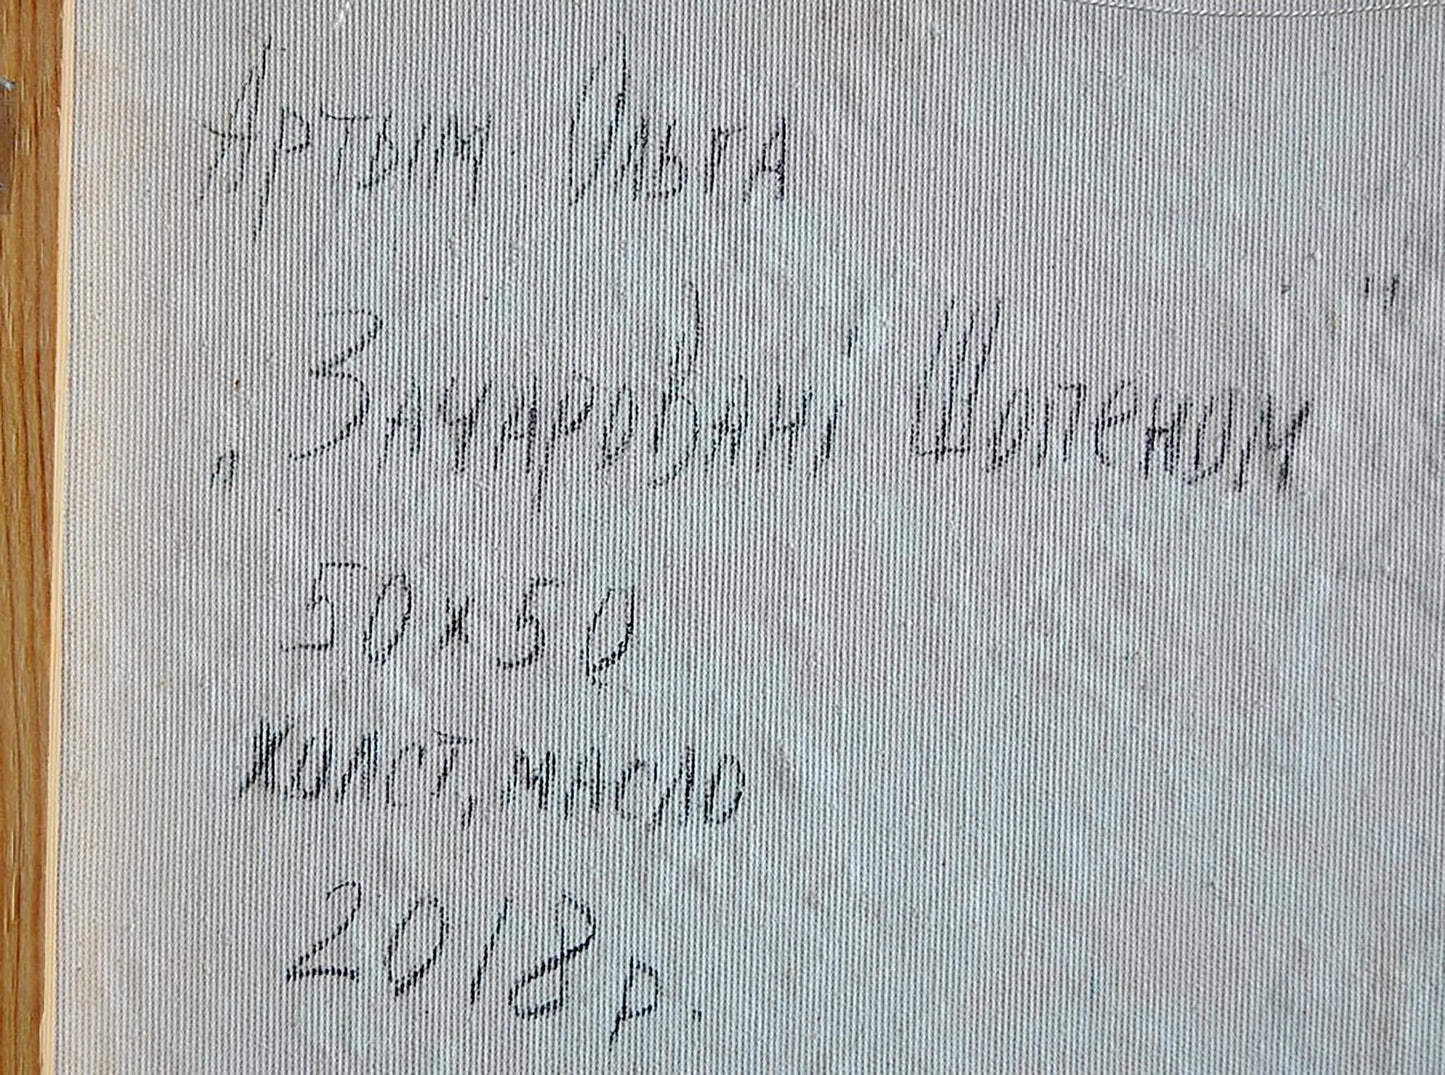 Артым Ольга
„Зачаровані Шопеном"
50x50
холст, масло
2018 р.